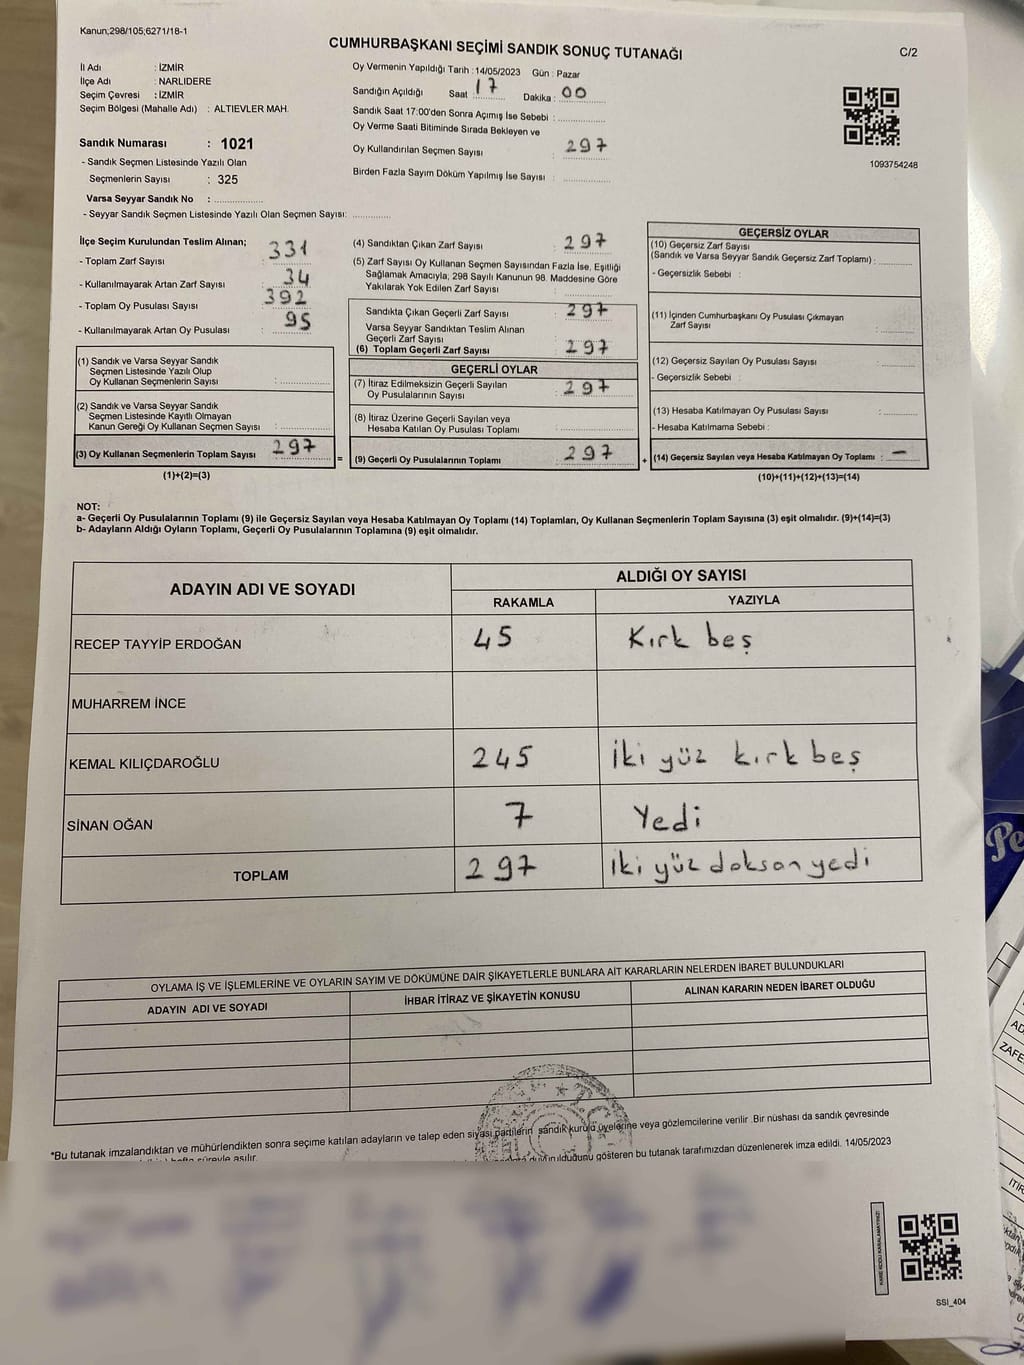 Kanun;298/105;6271/18-1
CUMHURBAŞKANI SEÇİMİ SANDIK SONUÇ TUTANAĞI
C/2
İl Adı : İZMİR
İlçe Adı : NARLIDERE
Seçim Çevresi : İZMİR
Seçim Bölgesi (Mahalle Adı) : ALTIEVLER MAH.
Sandık Numarası : 1021
- Sandık Seçmen Listesinde Yazılı Olan
Seçmenlerin Sayısı : 325
Varsa Seyyar Sandık No :
- Seyyar Sandık Seçmen Listesinde Yazılı Olan Seçmen Sayısı:
Oy Vermenin Yapıldığı Tarih : 14/05/2023 Gün : Pazar
Sandığın Açıldığı Saat 17 Dakika : 00
Sandık Saat 17:00'den Sonra Açımış İse Sebebi :
Oy Verme Saati Bitiminde Sırada Bekleyen ve
Oy Kullandırılan Seçmen Sayısı : 297
Birden Fazla Sayım Döküm Yapılmış İse Sayısı :
1093754248
İlçe Seçim Kurulundan Teslim Alınan;
- Toplam Zarf Sayısı : 331
- Kullanılmayarak Artan Zarf Sayısı : 34
- Toplam Oy Pusulası Sayısı : 392
- Kullanılmayarak Artan Oy Pusulası : 95
(1) Sandık ve Varsa Seyyar Sandık
Seçmen Listesinde Yazılı Olup
Oy Kullanan Seçmenlerin Sayısı :
(2) Sandık ve Varsa Seyyar Sandık
Seçmen Listesinde Kayıtlı Olmayan
Kanun Gereği Oy Kullanan Seçmen Sayısı :
(3) Oy Kullanan Seçmenlerin Toplam Sayısı 297
(1)+(2)=(3)
=
(4) Sandıktan Çıkan Zarf Sayısı : 297
(5) Zarf Sayısı Oy Kullanan Seçmen Sayısından Fazla İse, Eşitliği
Sağlamak Amacıyla, 298 Sayılı Kanunun 98. Maddesine Göre
Yakılarak Yok Edilen Zarf Sayısı :
Sandıkta Çıkan Geçerli Zarf Sayısı : 297
Varsa Seyyar Sandıktan Teslim Alınan
Geçerli Zarf Sayısı :
(6) Toplam Geçerli Zarf Sayısı : 297
GEÇERLİ OYLAR
(7) İtiraz Edilmeksizin Geçerli Sayılan
Oy Pusulalarının Sayısı : 297
(8) İtiraz Üzerine Geçerli Sayılan veya
Hesaba Katılan Oy Pusulası Toplamı :
(9) Geçerli Oy Pusulalarının Toplamı : 297
+
GEÇERSİZ OYLAR
(10) Geçersiz Zarf Sayısı
(Sandık ve Varsa Seyyar Sandık Geçersiz Zarf Toplamı) :
- Geçersizlik Sebebi :
(11) İçinden Cumhurbaşkanı Oy Pusulası Çıkmayan
Zarf Sayısı :
(12) Geçersiz Sayılan Oy Pusulası Sayısı :
- Geçersizlik Sebebi :
(13) Hesaba Katılmayan Oy Pusulası Sayısı :
- Hesaba Katılmama Sebebi :
(14) Geçersiz Sayılan veya Hesaba Katılmayan Oy Toplamı : –
(10)+(11)+(12)+(13)=(14)
NOT:
a- Geçerli Oy Pusulalarının Toplamı (9) ile Geçersiz Sayılan veya Hesaba Katılmayan Oy Toplamı (14) Toplamları, Oy Kullanan Seçmenlerin Toplam Sayısına (3) eşit olmalıdır. (9)+(14)=(3)
b- Adayların Aldığı Oyların Toplamı, Geçerli Oy Pusulalarının Toplamına (9) eşit olmalıdır.
ADAYIN ADI VE SOYADI
ALDIĞI OY SAYISI
RAKAMLA YAZIYLA
RECEP TAYYİP ERDOĞAN 45 Kırk beş
MUHARREM İNCE
KEMAL KILIÇDAROĞLU 245 İki yüz kırk beş
SİNAN OĞAN 7 Yedi
TOPLAM 297 İki yüz doksan yedi
OYLAMA İŞ VE İŞLEMLERİNE VE OYLARIN SAYIM VE DÖKÜMÜNE DAİR ŞİKAYETLERLE BUNLARA AİT KARARLARIN NELERDEN İBARET BULUNDUKLARI
ADAYIN ADI VE SOYADI İHBAR İTİRAZ VE ŞİKAYETİN KONUSU ALINAN KARARIN NEDEN İBARET OLDUĞU
*Bu tutanak imzalandıktan ve mühürlendikten sonra seçime katılan adayların ve talep eden siyasi partilerin sandık kurulu üyelerine veya gözlemcilerine verilir. Bir nüshası da sandık çevresinde
hafta süreyle asılır.
gösteren bu tutanak tarafımızdan düzenlenerek imza edildi. 14/05/2023
KARE KODU KARALAMAYINIZ!
SSI_404
Pe
AD
ZAFE